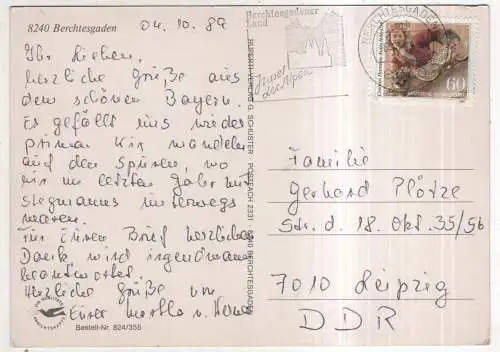 8240 Berchtesgaden
04.10.89
Ihr Lieben,
herzliche Grüße aus
dem schönen Bayern.
Es gefällt uns wieder
prima. Wir wandeln
auf den Spuren, wo
wir im letzten Jahr mit
Stegmanns unterwegs
waren.
Für Euren Brief herzlichen
Dank, wird irgendwann
beantwortet.
Herzliche Grüße von
Eurer Martha u.
Bestell-Nr. 824/355
RUPERTI-VERLAG G. SCHUSTER POSTFACH 2231 8240 BERCHTESGADEN
Berchtesgadener
Land
Juwel
der Alpen
BERCHTESGADEN
60
Familie
Gerhard Plötze
Str. d. 18. Okt. 35/56
7010 Leipzig
DDR